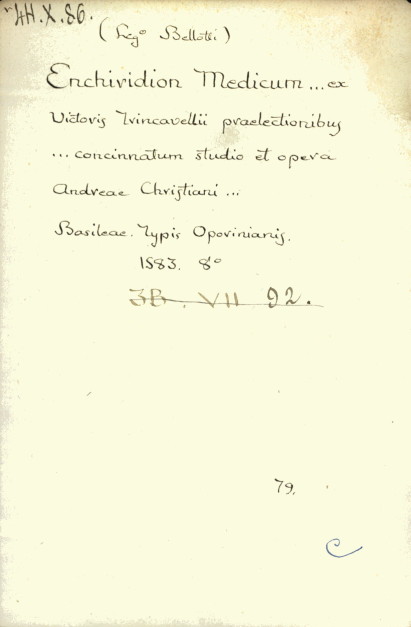 44.X.86.
(Legº Bellotti.)
Enchiridion Medicum ... ex
Victoris Trincavellii praelectionibus
... concinnatum studio et opera
Andreae Christiani ...
Basileae. Typis Oporinianis.
1583. 8º
3B. VII 92.
79.
C